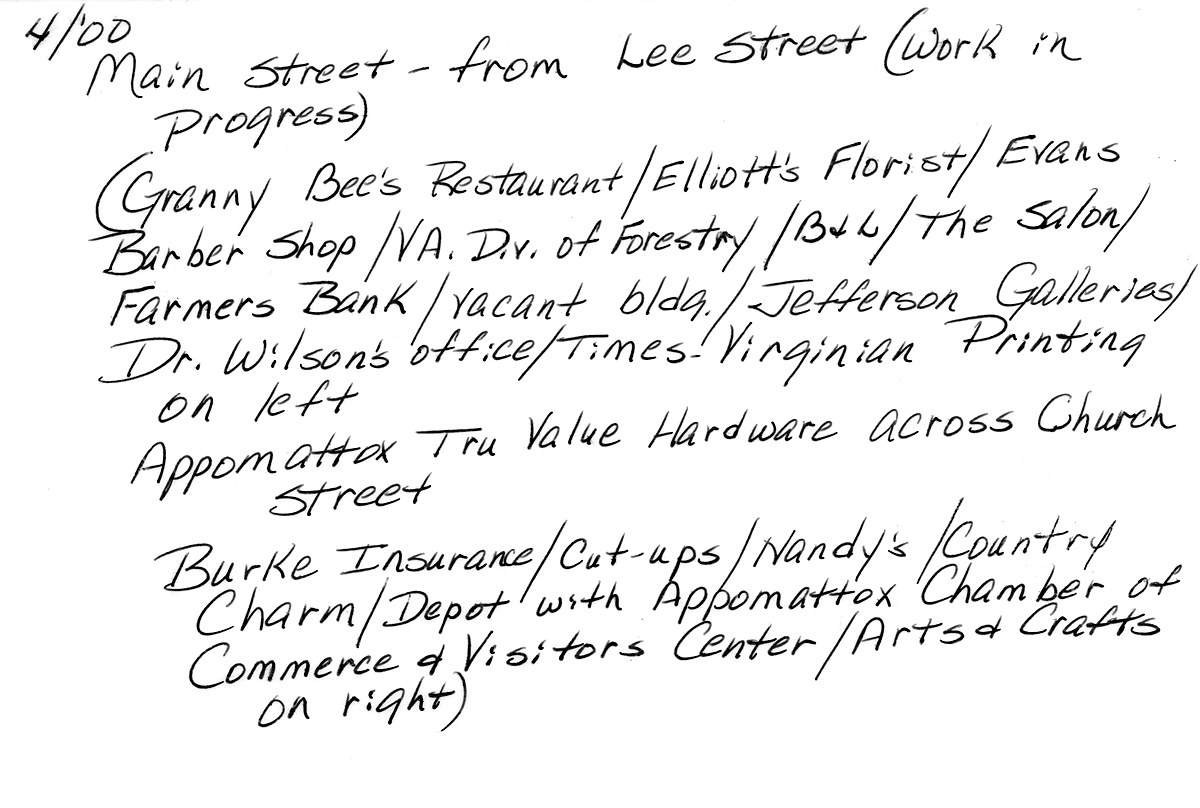 4/'00
Main Street - from Lee Street (Work in
Progress)
(Granny Bee's Restaurant/Elliott's Florist/Evans
Barber Shop/VA. Div. of Forestry/B&L/The Salon/
Farmers Bank/vacant bldg./Jefferson Galleries/
Dr. Wilson's office/Times-Virginian Printing
on left
Appomattox Tru Value Hardware across Church
Street
Burke Insurance/Cut-ups/Nandy's/Country
Charm/Depot with Appomattox Chamber of
Commerce & Visitors Center/Arts & Crafts
on right)